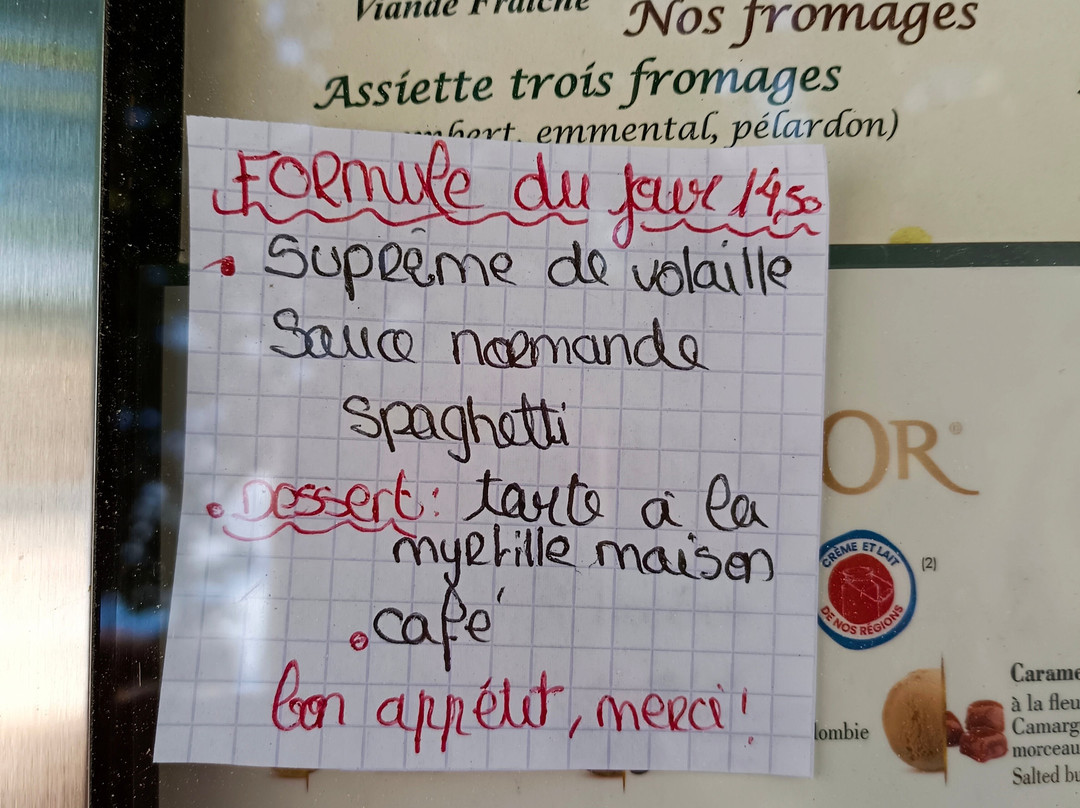 Viande Fraîche
Nos fromages
Assiette trois fromages
emmental, pélardon)
Formule du jour 14,50
• Suprême de volaille
Sauce normande
spaghetti
• Dessert: tarte à la
myrtille maison
• café
bon appétit, merci!
OR®
CRÈME ET LAIT
DE NOS RÉGIONS
(2)
lombie
Carame
à la fleu
Camarg
morceau
Salted bu